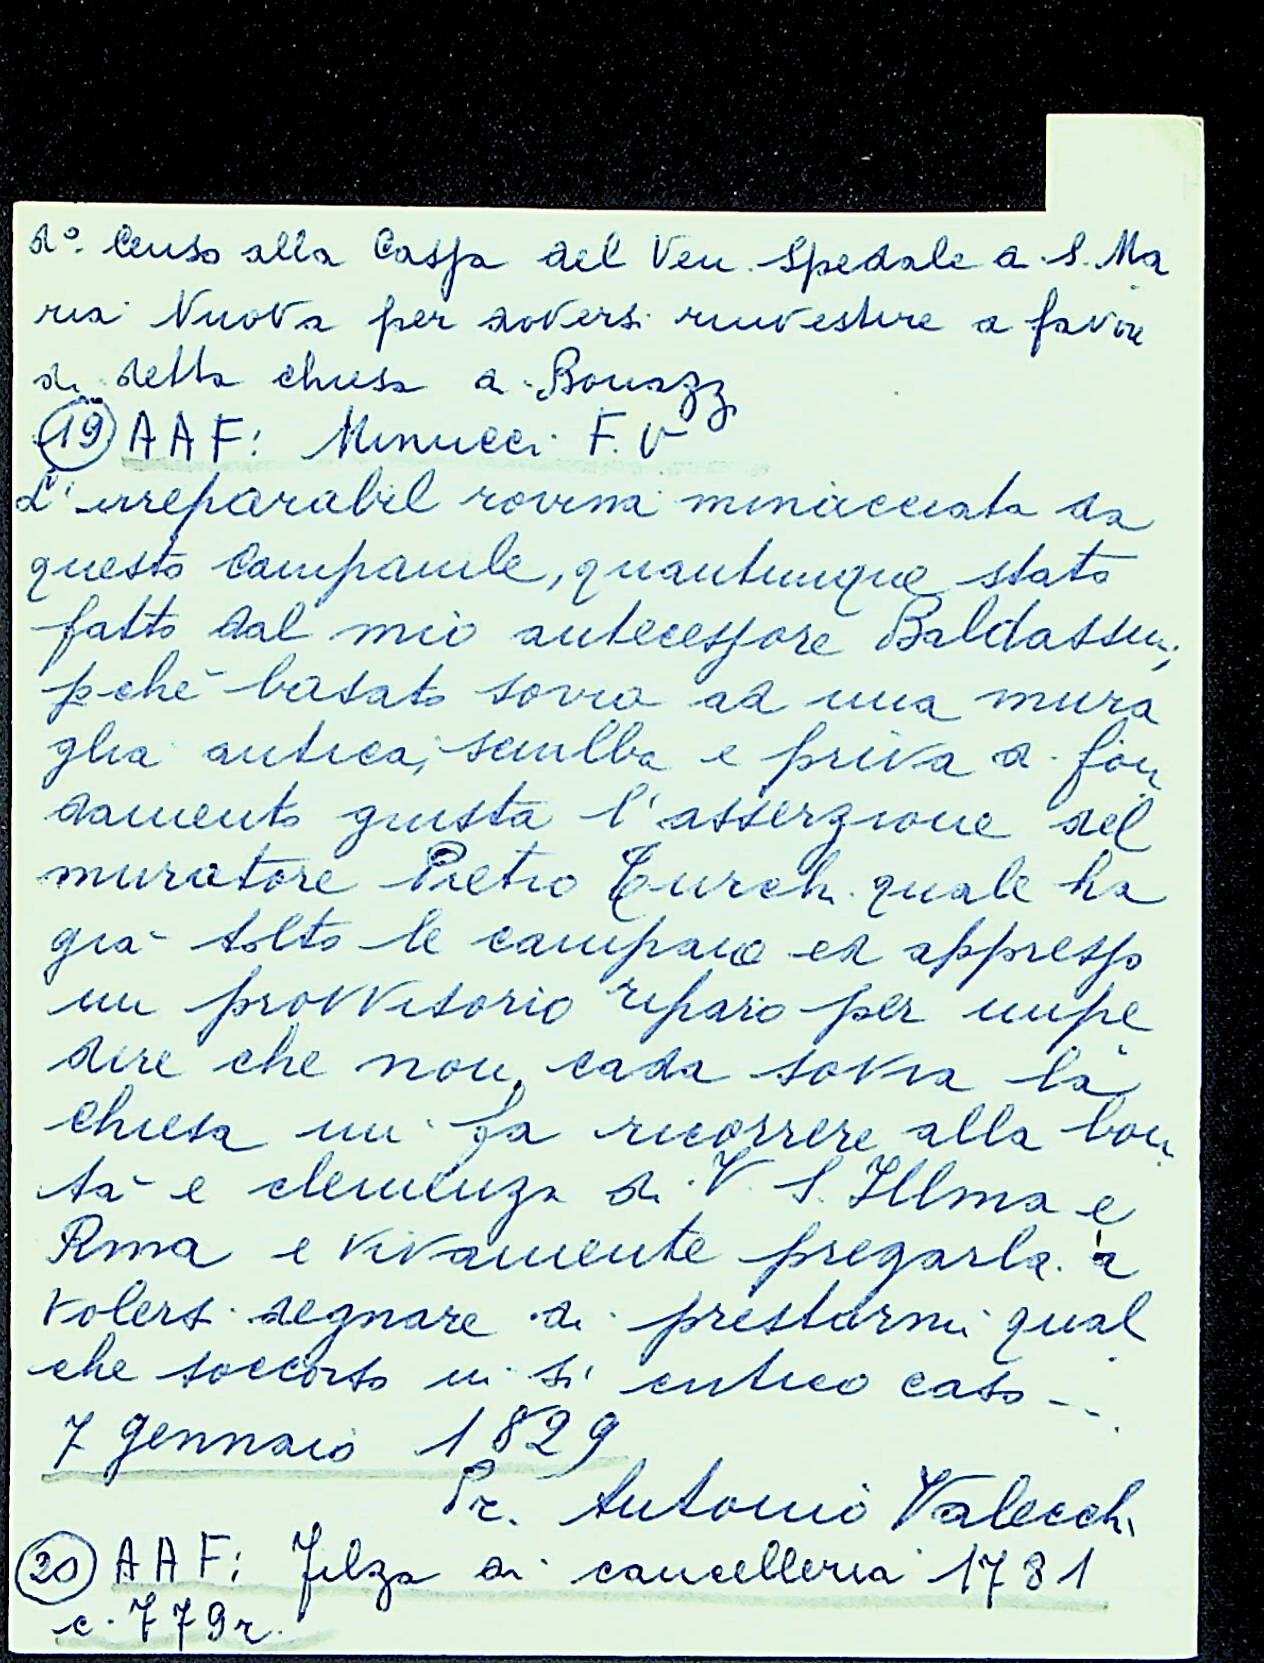 do. Censo alla Cassa del Ven. Spedale di S. Ma
ria Nuova per doversi rinvestire a favore
di detta chiesa a Bonazz
(19) AAF: Minucci F. V
L'irreparabil rovina minacciata da
questo Campanile, quantunque stato
fatto dal mio antecessore Baldassini,
pchè basato sovra ad una mura
glia antica, e priva di fon
damento giusta l'asserzione del
muratore Pietro Turchi quale ha
già tolto le campane ed appresso
un provvisorio riparo per impe
dire che non cada sovra la
chiesa mi fa ricorrere alla bon
tà e clemenza di V. S. Illma e
Rma e vivamente pregarla a
volersi degnare di prestarmi qual
che soccorso in sì critico caso ---
7 gennaio 1829
Pr. Antonio Valecchi
(20) AAF: Filza di cancelleria 1781
c. 779r.